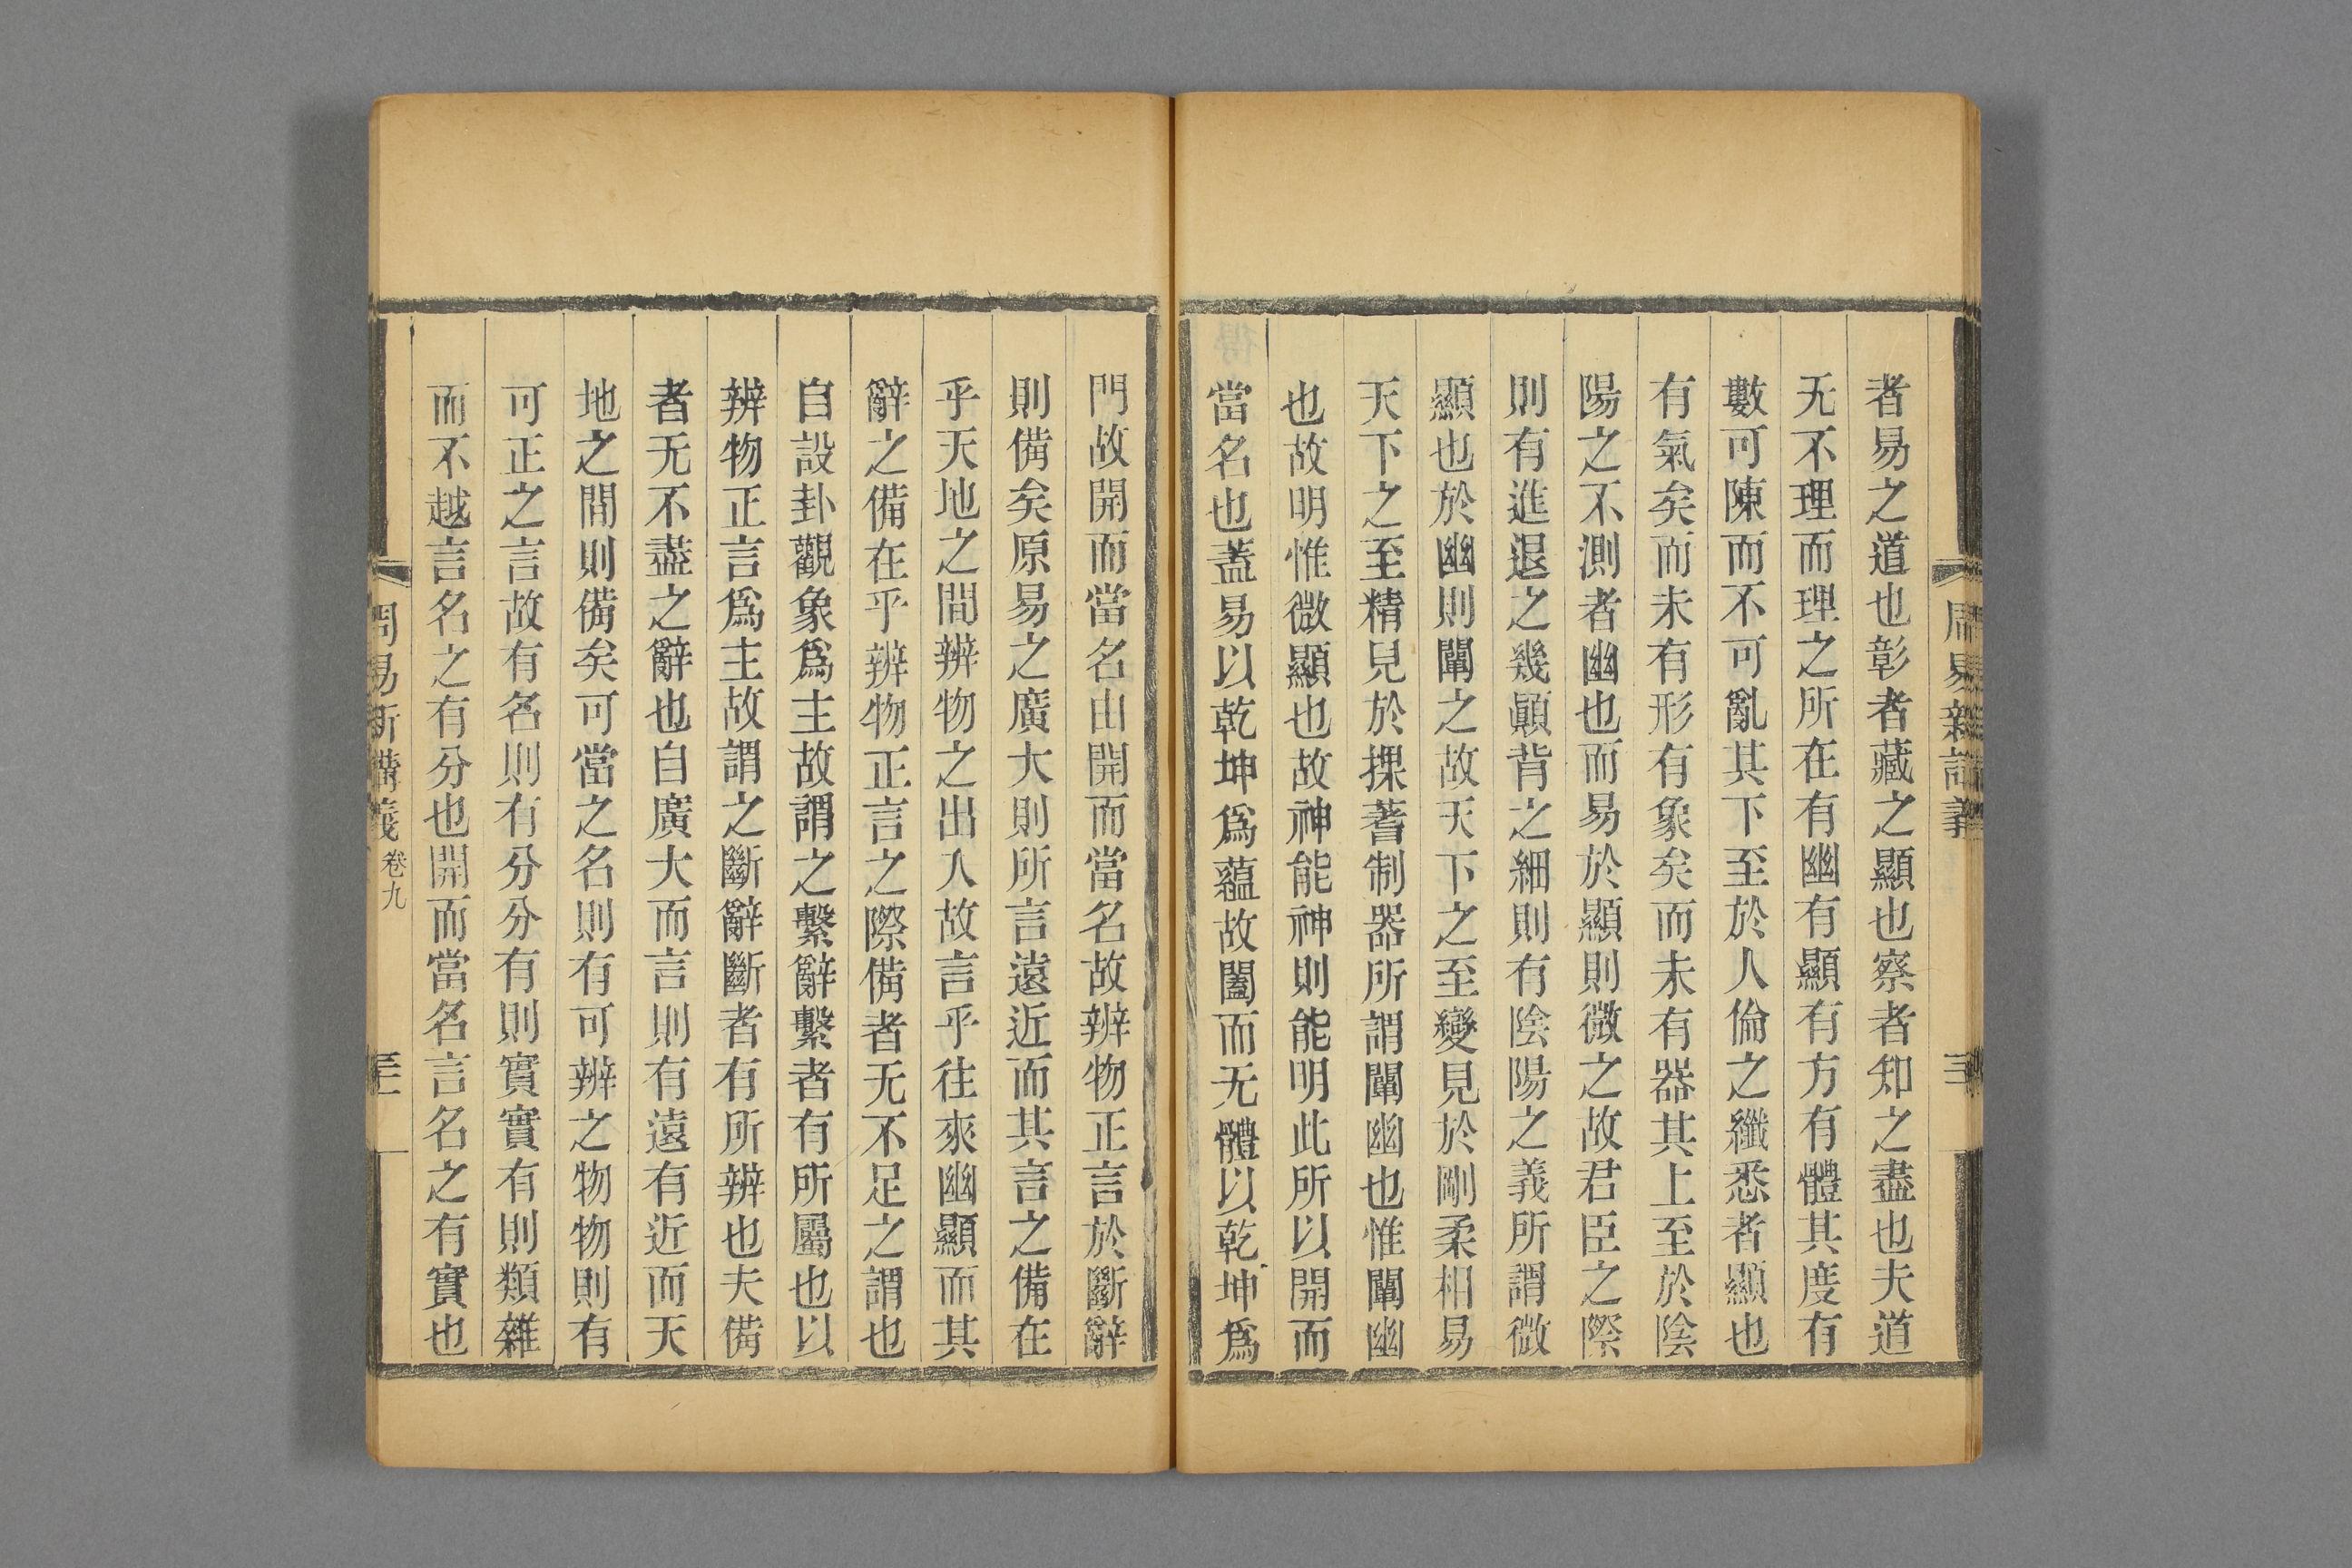 者易之道也彰者藏之顯也察者知之盡也夫道
无不理而理之所在有幽有顯有方有體其度有
數可陳而不可亂其下至於人倫之纖悉者顯也
有氣矣而未有形有象矣而未有器其上至於陰
陽之不測者幽也而易於顯則微之故君臣之際
則有進退之幾顚背之細則有陰陽之義所謂微
顯也於幽則闡之故天下之至變見於剛柔相易
天下之至精見於揲蓍制器所謂闡幽也惟闡幽
也故明惟微顯也故神能神則能明此所以開而
當名也蓋易以乾坤爲蘊故闔而无體以乾坤爲
門故開而當名由開而當名故辨物正言於斷辭
則備矣原易之廣大則所言遠近而其言之備在
乎天地之間辨物之出入故言乎往來幽顯而其
辭之備在乎辨物正言之際備者无不足之謂也
自設卦觀象爲主故謂之繫辭繫者有所屬也以
辨物正言爲主故謂之斷辭斷者有所辨也夫備
者无不盡之辭也自廣大而言則有遠有近而天
地之間則備矣可當之名則有可辨之物物則有
可正之言故有名則有分分有則實實有則類雜
而不越言名之有分也開而當名言名之有實也
周易新講義 卷九